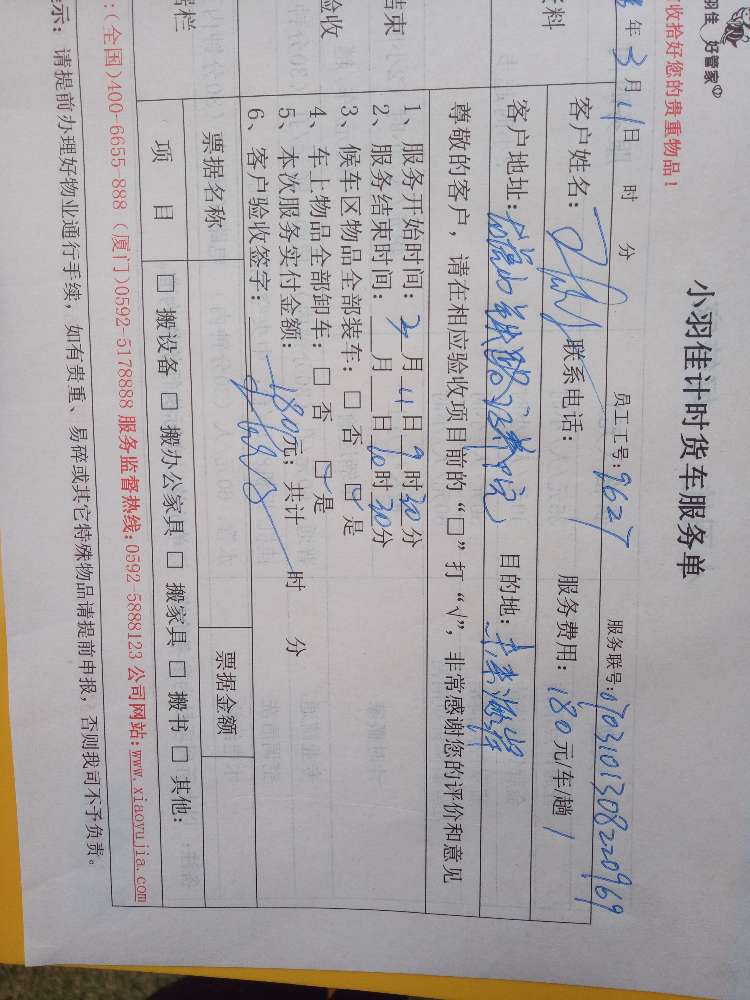 羽佳 好管家
小羽佳计时货车服务单
收拾好您的贵重物品!
年3月11日 时 分 员工工号:9627 服务联号:
客户姓名: 联系电话: 服务费用:180元/车/趟
客户地址: 目的地:
尊敬的客户,请在相应验收项目前的“□”打“√”,非常感谢您的评价和意见
1、服务开始时间: 月11日9时30分
2、服务结束时间: 月 日10时30分
3、候车区物品全部装车:□ 否 ☑ 是
4、车上物品全部卸车:□ 否 ☑ 是
5、本次服务实付金额:180元;共计 时 分
6、客户验收签字:
票据名称 票据金额
项 目 □ 搬设备 □ 搬办公家具 □ 搬家具 □ 搬书 □ 其他:
:(全国)400-6655-888 (厦门)0592-5178888 服务监督热线:0592-5888123 公司网站:www.xiaoyujia.com
示:请提前办理好物业通行手续,如有贵重、易碎或其它特殊物品请提前申报,否则我司不予负责。